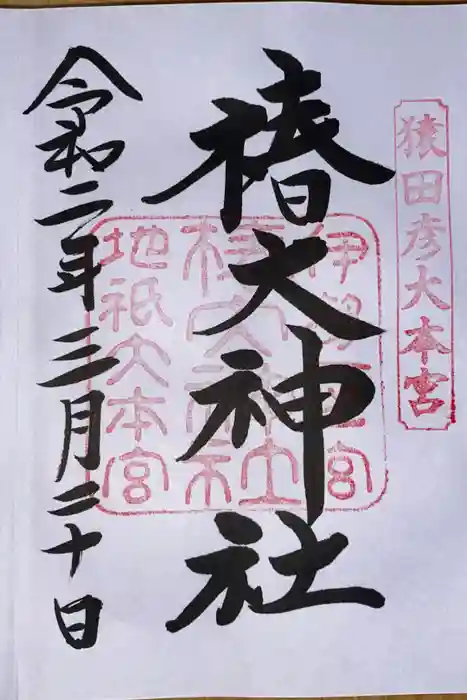 猿田彦大本宮
椿大神社
伊勢一宮
椿大神社
地祇大本宮
令和二年三月二十日